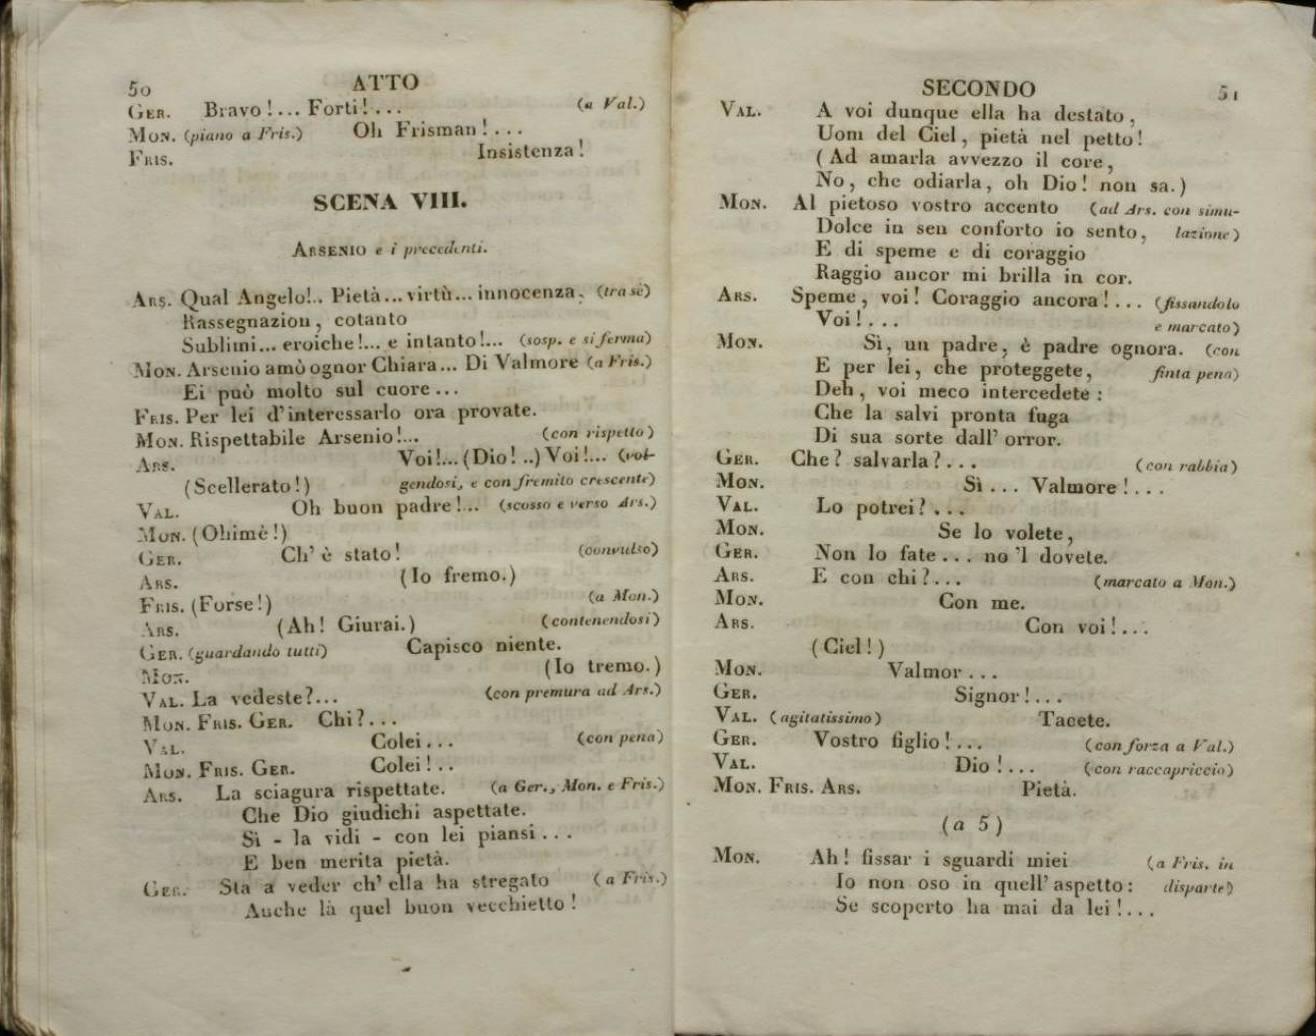 50 ATTO
GER. Bravo!... Forti!... (a Val.)
MON. (piano a Fris.) Oh Frisman!...
FRIS. Insistenza!
SCENA VIII.
ARSENIO e i precedenti.
ARS. Qual Angelo!.. Pietà... virtù... innocenza, (tra sè)
Rassegnazion, cotanto
Sublimi... eroiche!... e intanto!... (sosp. e si ferma)
MON. Arsenio amò ognor Chiara... Di Valmore (a Fris.)
Ei può molto sul cuore...
FRIS. Per lei d'interessarlo ora provate.
MON. Rispettabile Arsenio!... (con rispetto)
ARS. Voi!... (Dio! ..) Voi!... (vol-
(Scellerato!) gendosi, e con fremito crescente)
VAL. Oh buon padre!... (scosso e verso Ars.)
MON. (Ohimè!)
GER. Ch' è stato! (convulso)
ARS. (Io fremo.)
FRIS. (Forse!) (a Mon.)
ARS. (Ah! Giurai.) (contenendosi)
GER. (guardando tutti) Capisco niente.
MON. (Io tremo.)
VAL. La vedeste?... (con premura ad Ars.)
MON. FRIS. GER. Chi?...
VAL. Colei... (con pena)
MON. FRIS. GER. Colei!..
ARS. La sciagura rispettate. (a Ger., Mon. e Fris.)
Che Dio giudichi aspettate.
Sì - la vidi - con lei piansi...
E ben merita pietà.
GER. Sta a veder ch' ella ha stregato (a Fris.)
Anche là quel buon vecchietto!
SECONDO 51
VAL. A voi dunque ella ha destato,
Uom del Ciel, pietà nel petto!
(Ad amarla avvezzo il core,
No, che odiarla, oh Dio! non sa.)
MON. Al pietoso vostro accento (ad Ars. con simu-
Dolce in sen conforto io sento, lazione)
E di speme e di coraggio
Raggio ancor mi brilla in cor.
ARS. Speme, voi! Coraggio ancora!... (fissandolo
Voi!... e marcato)
MON. Sì, un padre, è padre ognora. (con
E per lei, che proteggete, finta pena)
Deh, voi meco intercedete:
Che la salvi pronta fuga
Di sua sorte dall' orror.
GER. Che? salvarla?... (con rabbia)
MON. Sì... Valmore!...
VAL. Lo potrei?...
MON. Se lo volete,
GER. Non lo fate... no 'l dovete.
ARS. E con chi?... (marcato a Mon.)
MON. Con me.
ARS. Con voi!...
(Ciel!)
MON. Valmor...
GER. Signor!...
VAL. (agitatissimo) Tacete.
GER. Vostro figlio!... (con forza a Val.)
VAL. Dio!... (con raccapriccio)
MON. FRIS. ARS. Pietà.
(a 5)
MON. Ah! fissar i sguardi miei (a Fris. in
Io non oso in quell' aspetto: disparte)
Se scoperto ha mai da lei!...